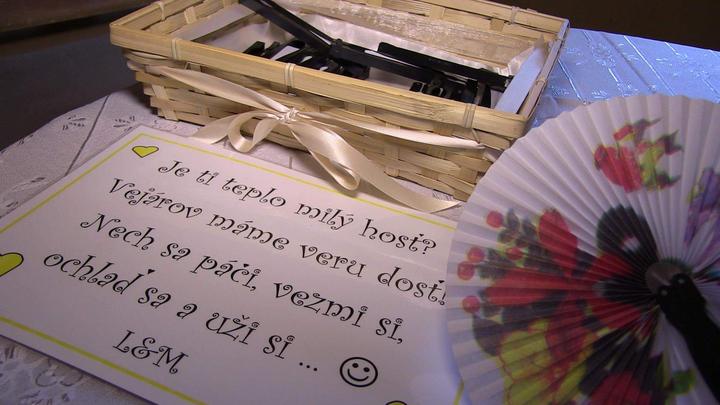 Je ti teplo milý hosť?
Vejárov máme veru dosť!
Nech sa páči, vezmi si,
ochlaď sa a uži si ... ☺
L&M